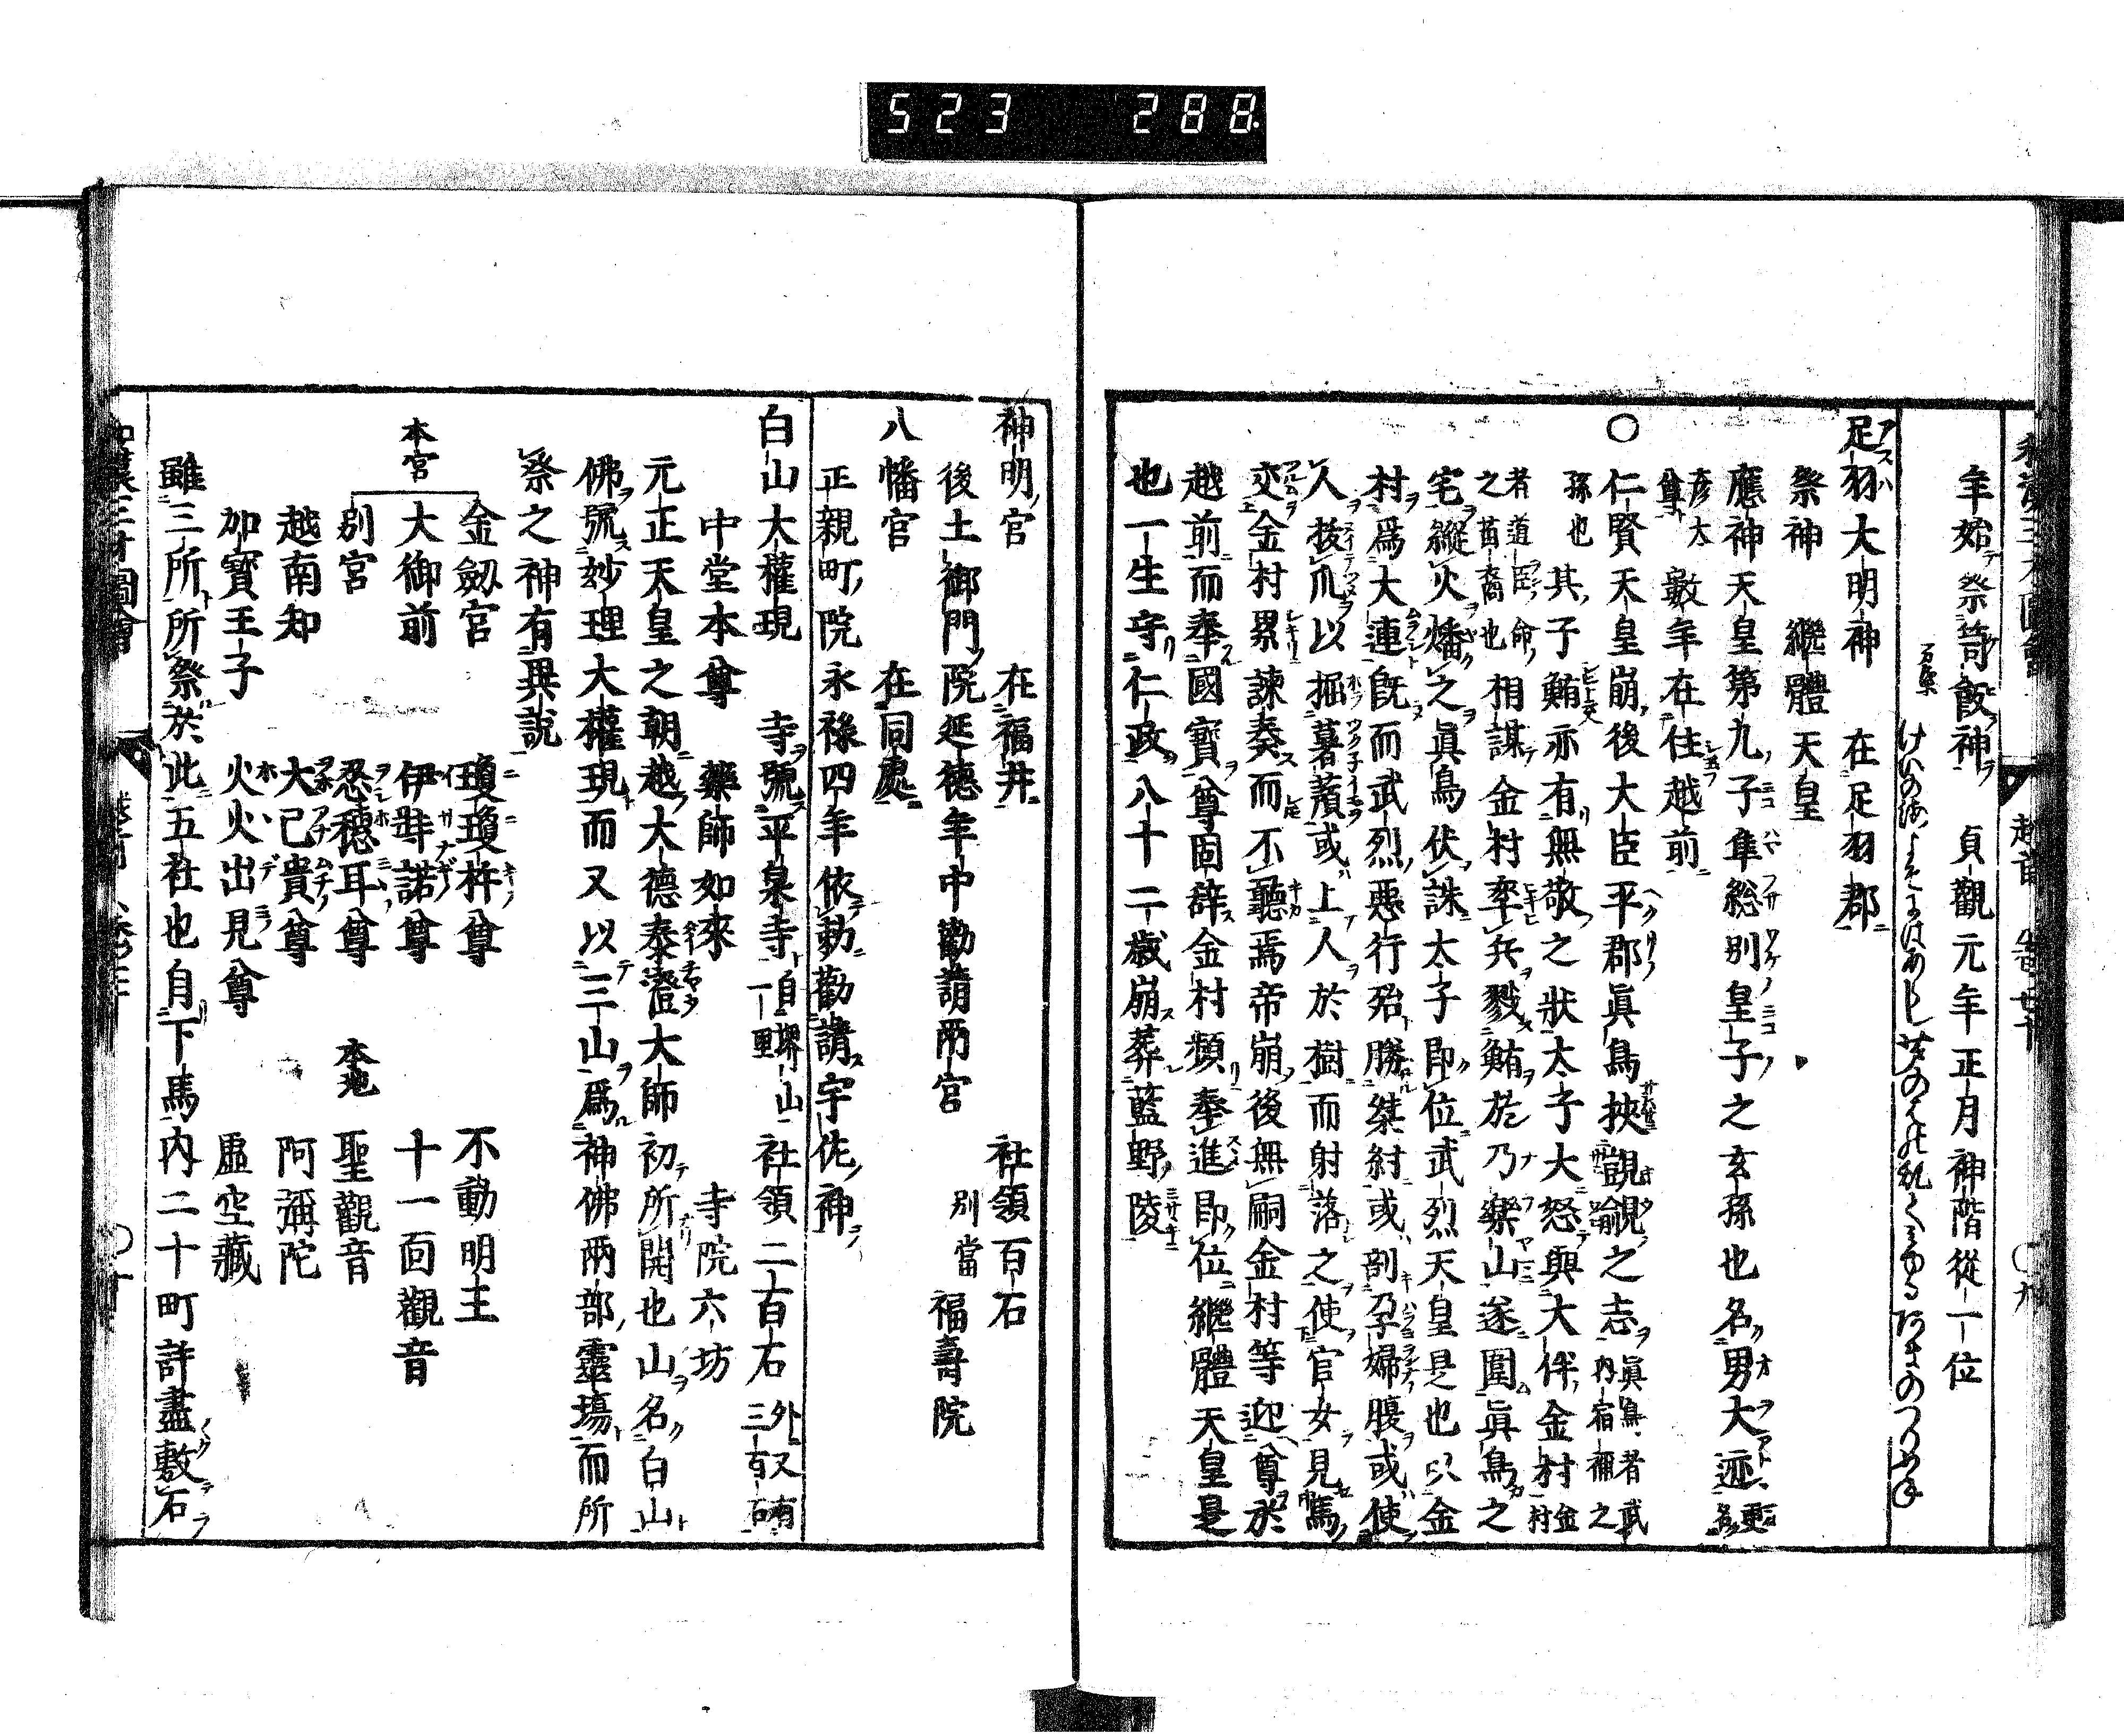 523 288
年始祭笥飯神 貞觀元年正月神階從一位
足羽大明神 在足羽郡
祭神 繼體天皇
應神天皇第九子隼総別皇子之玄孫也名男大迹更名
彦大尊數年在住越前
○仁賢天皇崩後大臣平郡眞鳥挾覬覦之志眞鳥者武内宿禰之
孫也其子鮪亦有無敬之狀太子大怒與大伴金村金村
者道臣命之苗裔也相謀金村率兵戮鮪於乃樂山遂圍眞鳥之
宅縱火燔之眞鳥伏誅太子即位武烈天皇是也以金
村爲大連旣而武烈悪行殆勝桀紂或剖孕婦腹或使
人拔爪以掘暑蕷或上人於樹而射落之使官女見馬
交金村累諫奏而不聽焉帝崩後無嗣金村等迎尊於
越前而奉國寶尊固辞金村頻奉進即位繼體天皇是
也一生守仁政八十二歳崩葬藍野陵
神明宮 在福井 社領百石
後土御門院延德年中勸請兩宮 別當 福壽院
八幡宮 在同處
正親町院永祿四年依勅勸請宇佐神
白山大權現 寺號平泉寺自堺山一里 社領二百石外又有三百石
中堂本尊 藥師如來 寺院六坊
元正天皇之朝越大德泰澄大師初所開也山名白山
佛號妙理大權現而又以三山爲神佛兩部靈場而所
祭之神有異説
金剱宮 瓊瓊杵尊 不動明王
本宮 大御前 伊弉諾尊 十一面觀音
別宮 忍穗耳尊 本地 聖觀音
越南知 大己貴尊 阿彌陀
加寶王子 火火出見尊 虛空藏
雖三所所祭於此五社也自下馬内二十町許盡敷石